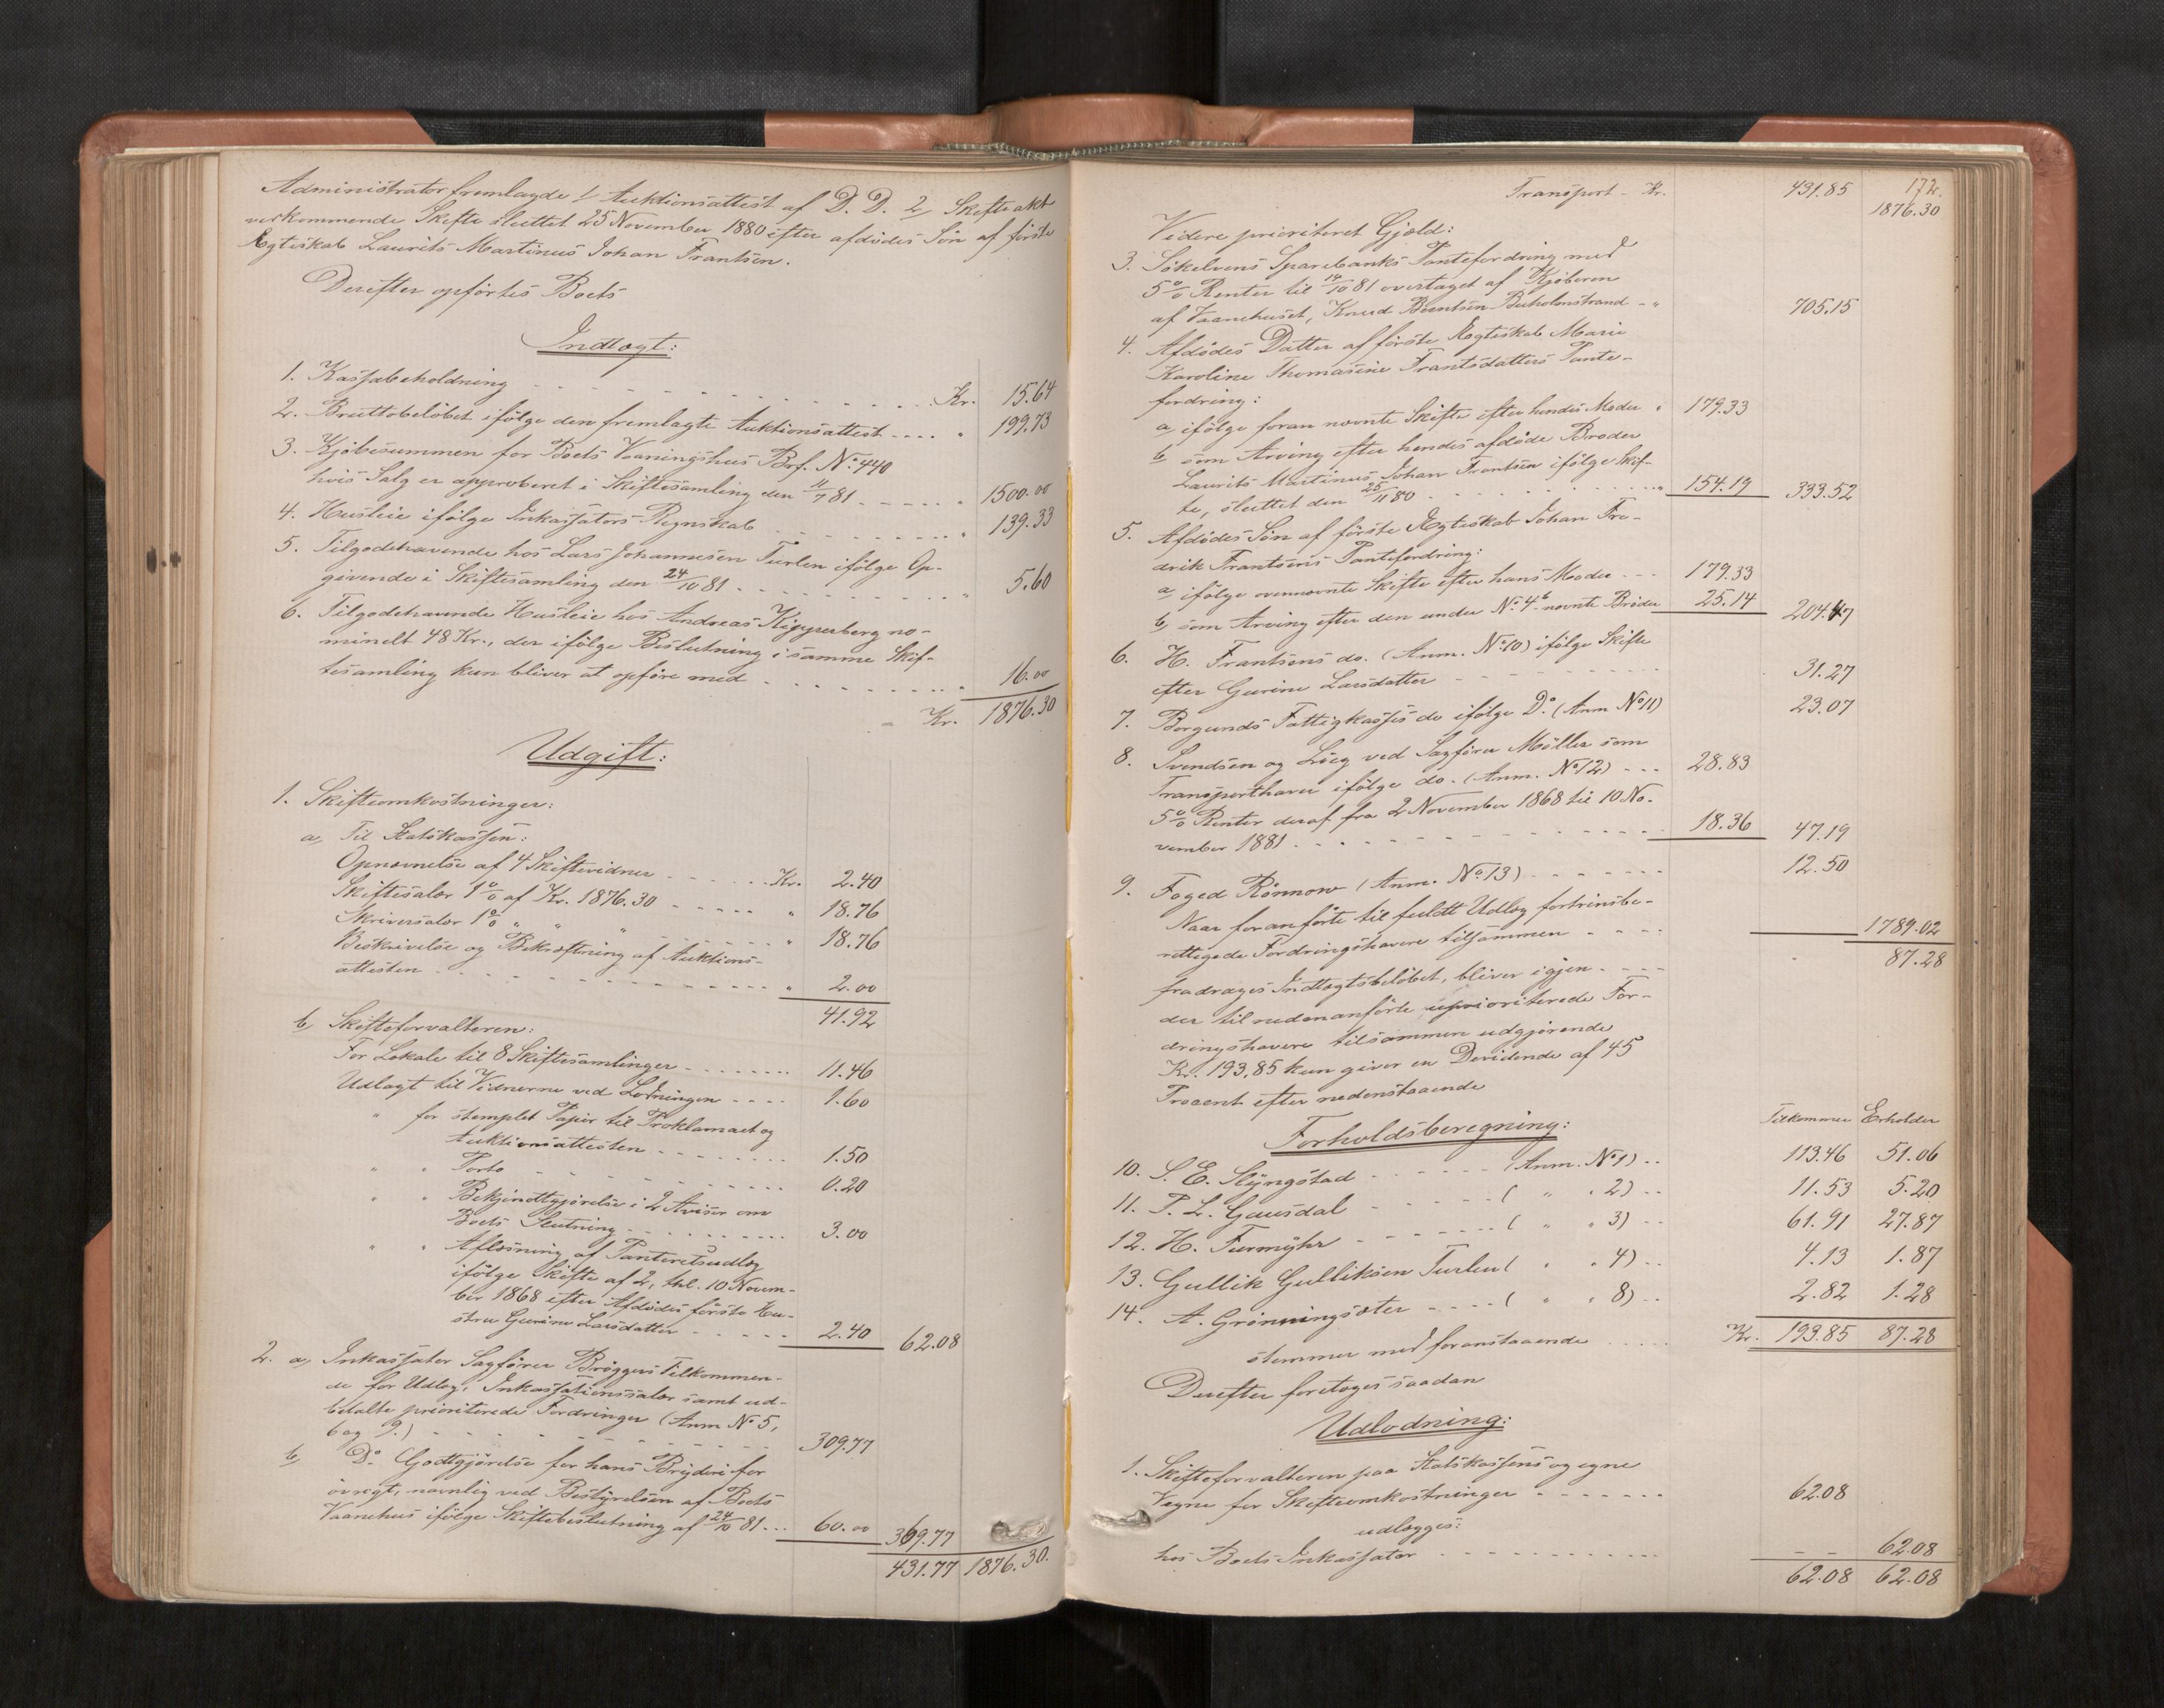 Administrator fremlagde 1, Auktionsattest af D. D. 2, Skifteakt
vedkommende Skifte sluttet 25 November 1880 efter afdødes Søn af første
Ægteskab Laurits Martinus Johan Frantsen.
Derefter opførtes Boets
Indtægt:
1. Kassabeholdning - - - Kr. 15.64
2. Bruttobeløbet ifølge den fremlagte Auktionsattest - - - " 199.73
3. Kjøbesummen for Boets Vaaningshus Brf. No 440
hvis Salg er approberet i Skiftesamling den 11/7 81 - - - " 1500.00
4. Husleie ifølge Inkassators Regnskab - - - " 139.33
5. Tilgodehavende hos Lars Johannesen Turlen ifølge Op-
givende i Skiftesamling den 24/10 81 - - - " 5.60
6. Tilgodehavende Husleie hos Andreas Kipperberg no-
minelt 48 Kr., der ifølge Beslutning i samme Skif-
tesamling kun bliver at opføre med - - - " 16.00
Kr. 1876.30
Udgift:
1. Skifteomkostninger:
a, Til Statskassen:
Opnævnelse af 4 Skiftevidner - - - Kr. 2.40
Skiftesalær 1% af Kr. 1876.30 - - - " 18.76
Skriversalær 1% " " " - - - " 18.76
Beskrivelse og Bekræftning af Auktions-
attesten - - - " 2.00
41.92
b, Skifteforvalteren:
For Lokale til 8 Skiftesamlinger - - - 11.46
Udlagt til Vidnerne ved Lodningen - - - 1.60
" for stemplet Papir til Proklamaet og
Auktionsattesten - - - 1.50
" " Porto - - - 0.20
" " Bekjendtgjørelse i 2 Aviser om
Boets Slutning - - - 3.00
" " Aflæsning af Panteretsudlæg
ifølge Skifte af 2, thl. 10 Novem-
ber 1868 efter Afdødes første Hu-
stru Gurine Larsdatter - - - 2.40 62.08
2. a, Inkassator Sagfører Brøggers Tilkommen-
de for Udlæg, Inkassationssalær samt ud-
betalte prioriterede Fordringer (Anm No 5,
6 og 9.) - - - 309.77
b, Do Godtgjørelse for hans Bryderi for
øvrigt, navnlig ved Bestyrelsen af Boets
Vaanehus ifølge Skiftebeslutning af 24/10 81 - - - 60.00 369.77
431.77 1876.30.
172.
Transport - Kr. 431.85 1876.30
Videre prioriteret Gjæld:
3. Søkelvens Sparebanks Pantefordring med
5% Renter til 14/10 81 overtaget af Kjøberen
af Vaanehuset, Knud Berntsen Buholmstrand - " 705.15
4. Afdødes Datter af første Ægteskab Marie
Karoline Thomasine Frantsdatters Pante-
fordring:
a, ifølge foran nævnte Skifte efter hendes Moder " 179.33
b, som Arving efter hendes afdøde Broder
Laurits Martinus Johan Frantsen ifølge Skif-
te, sluttet den 25/11 80 - - - " 154.19 333.52
5. Afdødes Søn af første Ægteskab Johan Fre-
drik Frantsens Pantefordring:
a, ifølge ovennævnte Skifte efter hans Moder - - - 179.33
b, som Arving efter den under No 4b nævnte Broder 25.14 204.47
6. H. Frantsens do. (Anm. No 10) ifølge Skifte
efter Gurine Larsdatter - - - 31.27
7. Borgunds Fattigkasses do ifølge Do. (Anm No 11) 23.07
8. Svendsen og Lieg ved Sagfører Møller som
Transporthaver ifølge do. (Anm. No 12) - - - 28.83
5% Renter deraf fra 2 November 1868 til 10 No-
vember 1881 - - - 18.36 47.19
9. Foged Rønnow (Anm. No 13) - - - 12.50
Naar foranførte til fuldt Udlæg fortrinsbe-
rettigede Fordringshavere tilsammen - - - 1789.02
fradrages Indtægtsbeløbet, bliver igjen - - - 87.28
der til nedenanførte uprioriterede For-
dringshavere tilsammen udgjørende
Kr. 193.85 kun giver en Dividende af 45
Procent efter nedenstaaende
Forholdsberegning:
Tilkommer Erholder
10. S. E. Slyngstad - - - (Anm. No 1) - - 113.46 51.06
11. P. L. Gausdal - - - ( " " 2) - - 11.53 5.20
12. H. Furmyhr - - - ( " " 3) - - 61.91 27.87
13. Gullik Gulliksen Turlen ( " " 4) - - 4.13 1.87
14. A. Grønningsæter - - - ( " " 8) - - 2.82 1.28
stemmer med foranstaaende - - - Kr. 193.85 87.28
Derefter foretoges saadan
Udlodning:
1. Skifteforvalteren paa Statskassens og egne
Vegne for Skifteomkostninger - - - 62.08
udlægges:
hos Boets Inkassator - - - 62.08
62.08 62.08